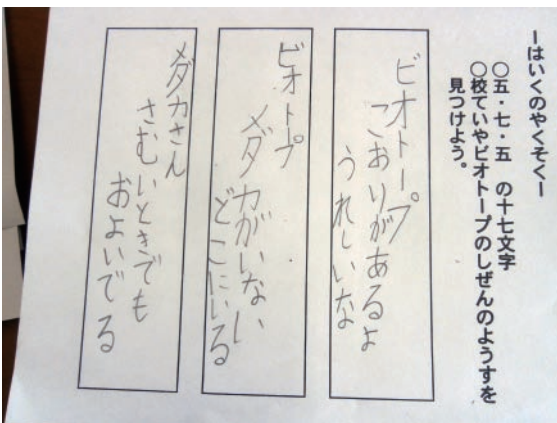 ーはいくのやくそくー
○五・七・五 の十七文字
○校ていやビオトープのしぜんのようすを
見つけよう。
ビオトープ
こおりがあるよ
うれしいな
ビオトープ
メダカがいない
どこにいる
メダカさん
さむいときでも
およいでる